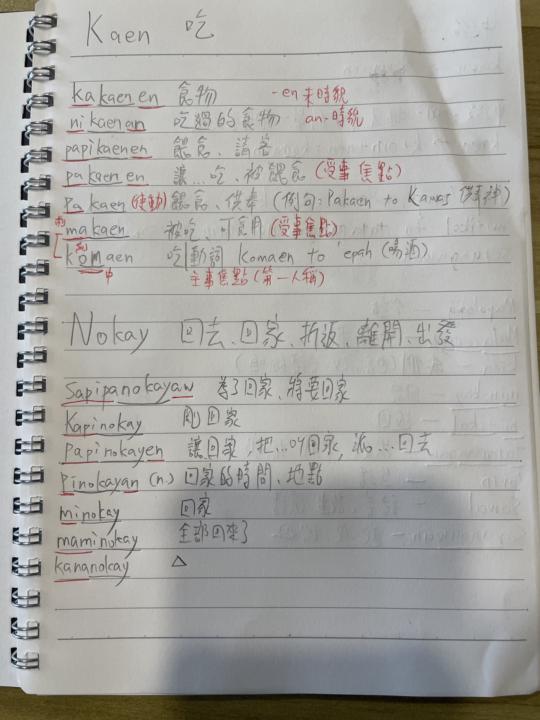 Kaen 吃
kakaenen 食物 -en 未時貌
nikaenan 吃過的食物 an-時貌
papikaenen 餵食、請客
pakaenen 讓…吃、被餵食 (受事焦點)
Pakaen (使動) 餵食、供奉 (例句: Pakaen to Kawas 供奉神)
makaen 被吃 可食用 (受事焦點)
komaen 吃 動詞 Komaen to 'epah (喝酒)
中 主事焦點 (第一人稱)
Nokay 回去、回家、折返、離開、出發
Sapipanokayaw 為了回家、將要回家
Kapinokay 剛回家
Papinokayen 讓回家,把…叫回家,派…回去
Pinokayan (n.) 回家的時間、地點
minokay 回家
maminokay 全部回來了
kananokay △